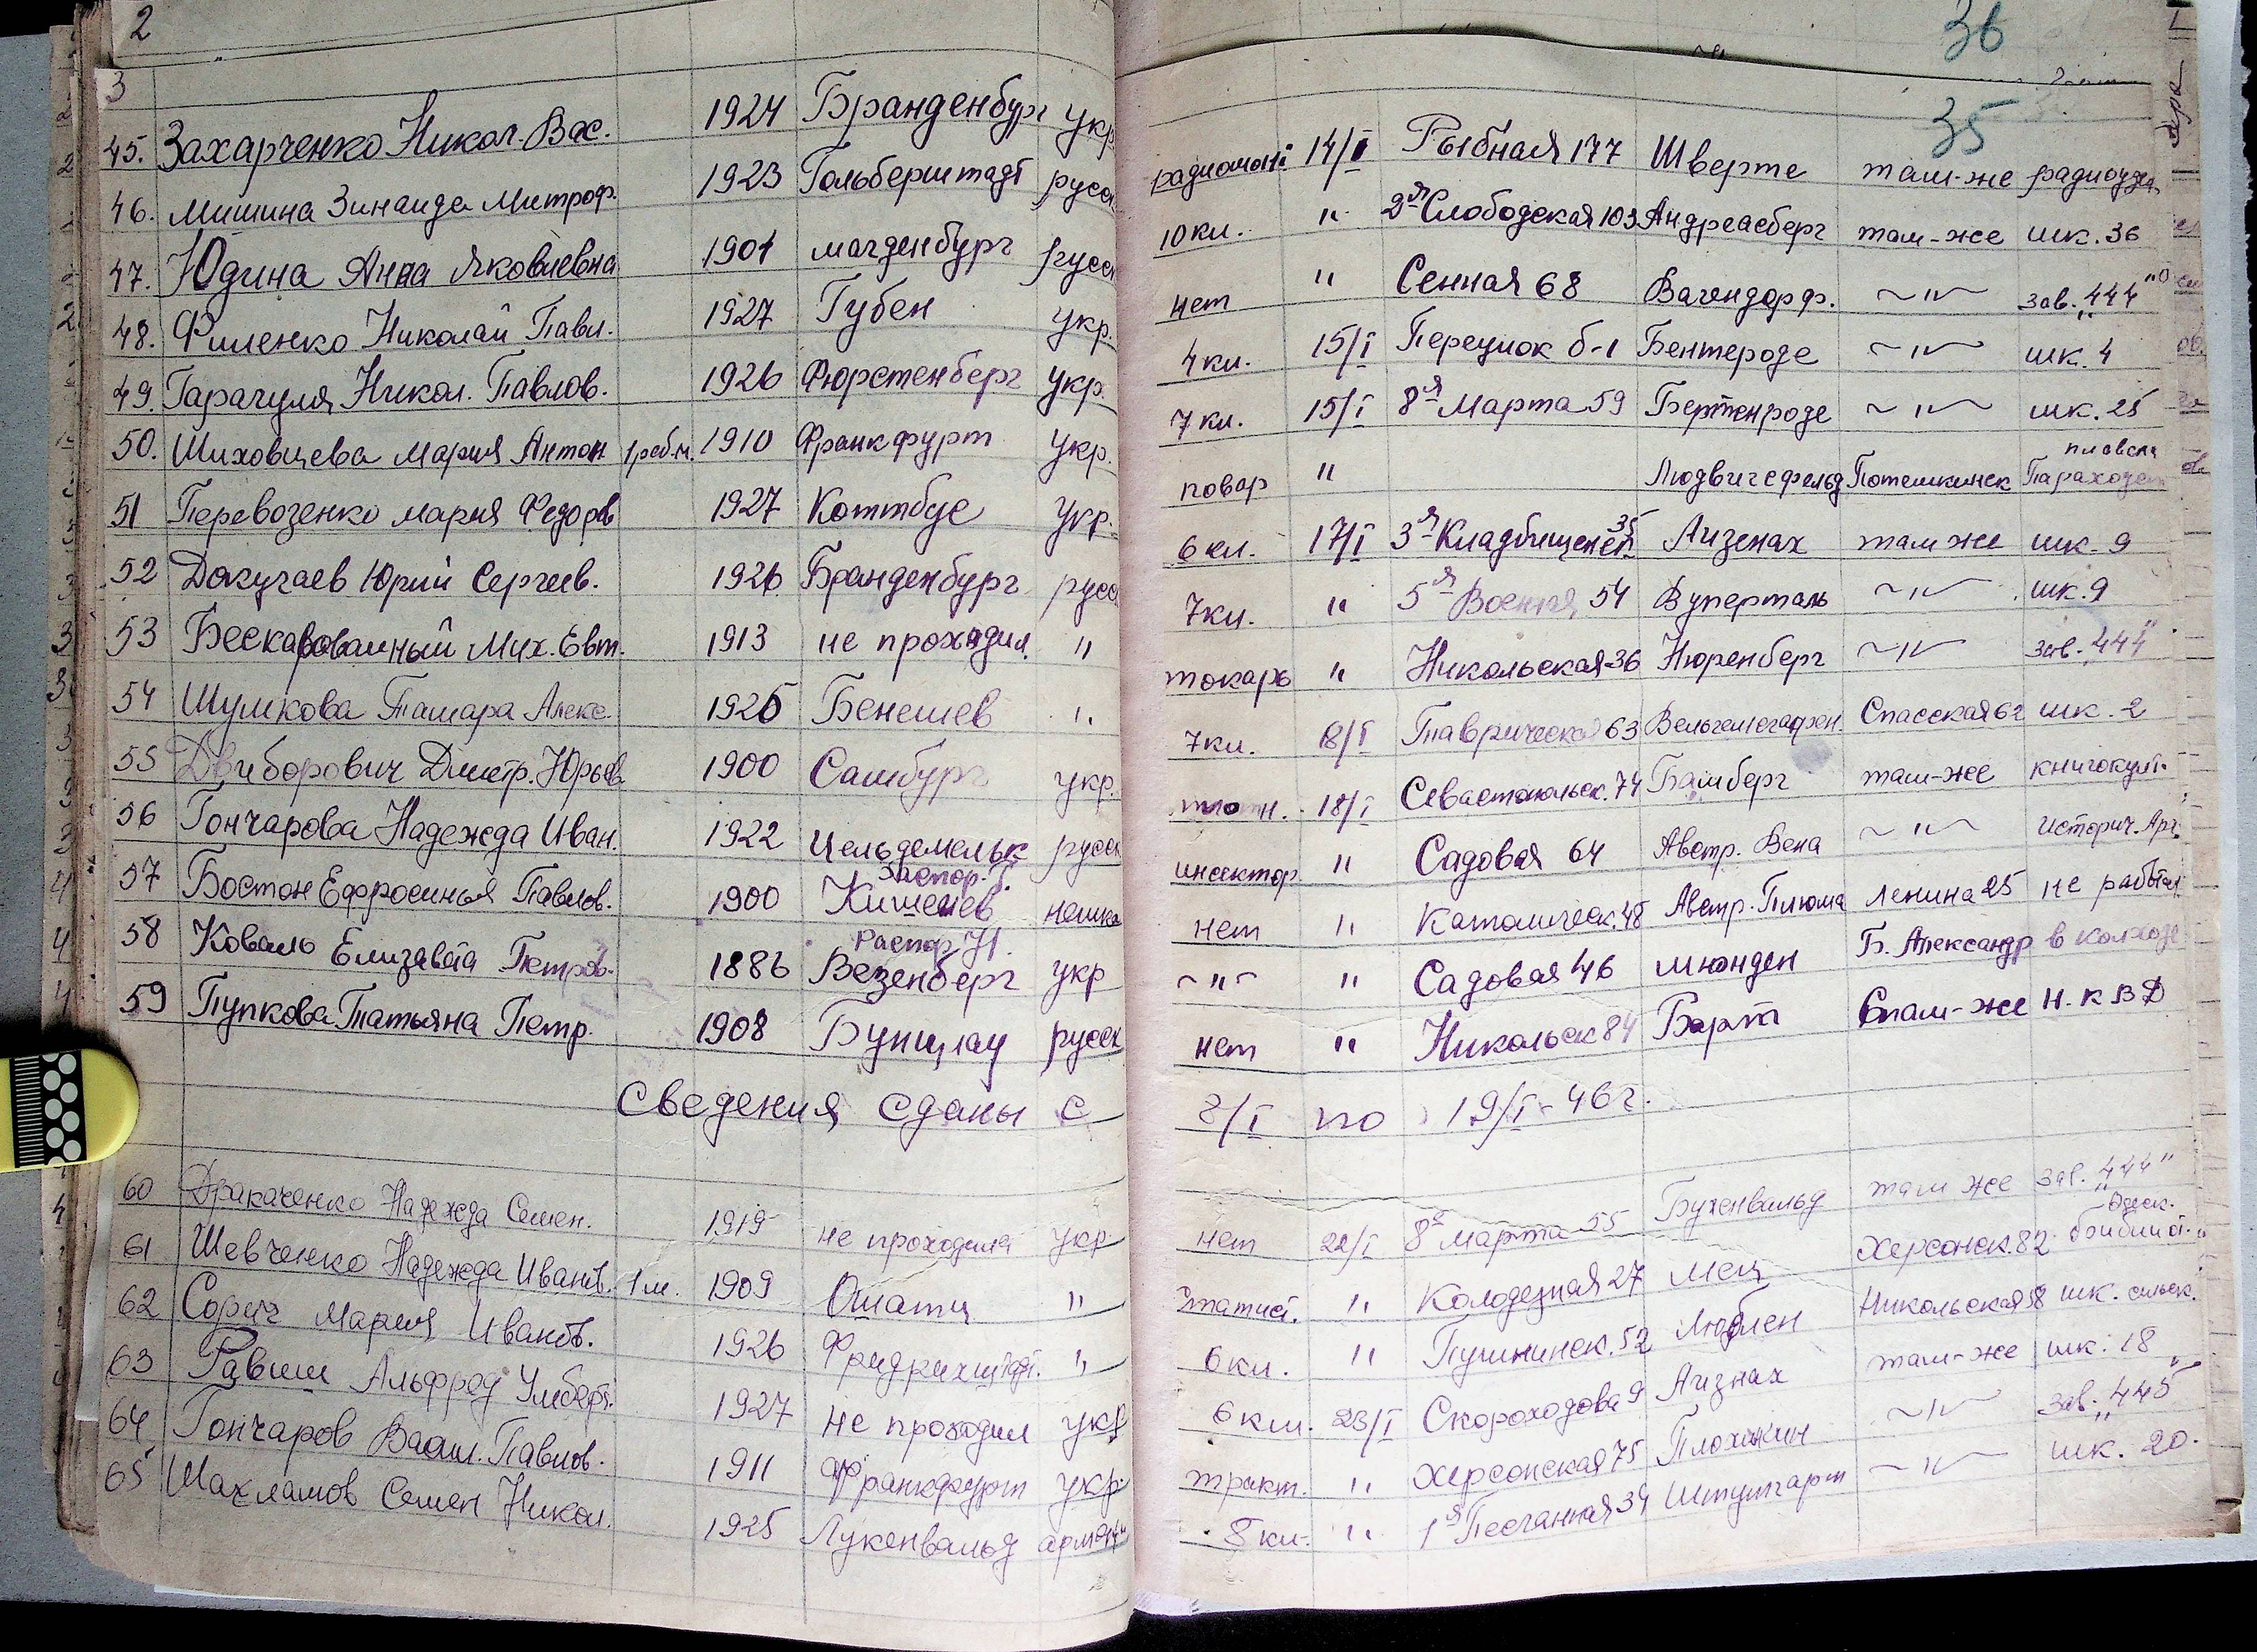 2
36
3
35
45. Захарченко Никол. Вас. 1924 Бранденбург укр. 14/I Рыбная 177 Шверте там-же радиоузел
46. Мишина Зинаида Митроф. 1923 Гольберштадт русск. 10 кл. " 2-я Слободская 103 Андреасберг там-же шк. 36
47. Юдина Анна Яковлевна 1901 магденбург русск нет " Сенная 68 Вагендорф. ~"~ зав. „444"
48. Филенко Николай Павл. 1927 Губен укр. 4 кл. 15/I Переулок б-1 Бентероде ~"~ шк. 4
49. Гарагуля Никол. Павлов. 1926 Фюрстенберг укр. 7 кл. 15/I 8-я Марта 59 Бертенроде ~"~ шк. 25
50. Шиховцева Мария Антон 1 реб. м. 1910 Франкфурт укр. повар " Людвигсфельд Потемкинск плавсна Параход
51 Перевозенко мария Федоров 1927 Коттбус укр. 6 кл. 17/I 3-я Кладбищенск 35 Аизенах там же шк. 9
52 Докучаев Юрий Сергеев. 1926 Бранденбург русс 7 кл. " 5-я Военная 54 Вуперталь ~"~ шк. 9
53 Бескаравайный Мих. Евт. 1913 не проходил. " токарь " Никольская-36 Нюренберг ~"~ зав. „444"
54 Шумкова Тамара Алекс. 1926 Бенешев " 7 кл. 18/I Таврическая 63 Спасская 62 шк. 2
55 Двиборович Дмитр. Юрьев 1900 Самбург укр. плотн. 18/I Севастопольск. 74 Бамберг там-же книгокульт.
56 Гончарова Надежда Иван. 1922 Цельдемельк русск инспектор. " Садовая 64 Австр. Вена ~"~ Историч. Арх.
57 Бостон Ефросинья Павлов. 1900 Запор. Г. Кишенев немка нет " Католическ. 48 Австр. Плюма Ленина 25 не работал
58 Коваль Елизавета Петров. 1886 Распор. Н. Везенберг укр ~"~ " Садовая 46 мюнден Б. Александр в колхозе
59 Пупкова Татьяна Петр. 1908 Бунцлау русск нет " Никольск 84 Барт там-же Н.К.В.Д
Сведения сданы с 8/I по 19/I-46г.
60 Дракаченко Надежда Семен. 1919 не проходила укр нет 22/I 8-е марта 55 Бухенвальд там же зав. „444"
61 Шевченко Надежда Иванов. 1 м. 1909 Ошатц " статист. " Колодезная 27 Мец Херсонск. 82 Одеск. библиот.
62 Сорич Мария Иванов. 1926 Фридрихштадт. " 6 кл. " Пушкинск. 52 Люблен Никольская 58 шк. сельск.
63 Равиш Альфред Умберт. 1927 не проходил укр 6 кл. 23/I Скороходова 9 Аизнах там-же шк. 18
64 Гончаров Васил. Павлов. 1911 Франкфурт укр. тракт. " Херсонская 75 Плохинин ~"~ зав. „445"
65 Шахламов Семен Никол. 1925 Лукенвальд армян 8 кл. " 1-я Песчанная 34 Штутгарт ~"~ шк. 20.